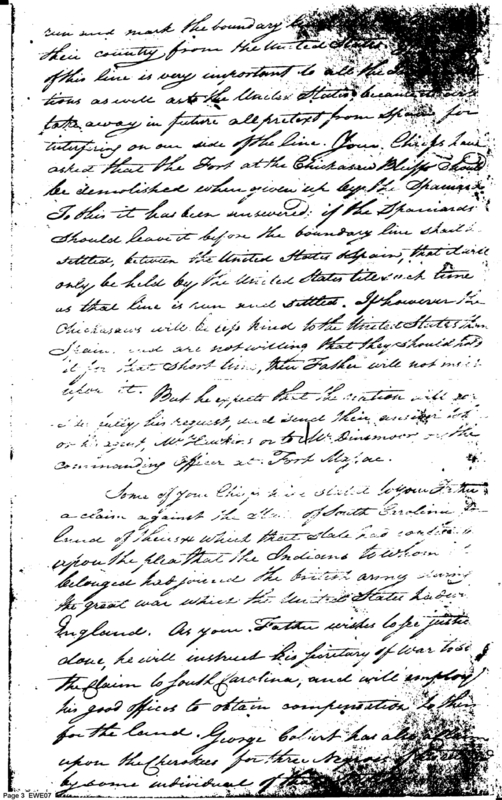 run and mark the boundary
their country from the United States.
of this line is very important to all the
tions as well as to the United States because it will
take away in future all pretext from Spain for
interfering on our side of the line. Your Chiefs have
asked that the Fort at the Chickasaw Bluffs should
be demolished when given up by the Spaniards
To this it has been answered; if the Spaniards
should leave it before the boundary line shall be
settled, between the United States & Spain, that it will
only be held by the United States till such time
as that line is run and settled. If however the
Chickasaws will be less kind to the United States than
Spain, and are not willing that they should hold
it for that short time, their Father will not insist
upon it. But he expects that the nation will
fully his request, and send their answer to
or his agent, Mr. Hawkins or to Mr. Dinsmoor or the
commanding Officer at Fort Massac.
Some of your Chiefs have stated to your Father
a claim against the State of South Carolina for
land of theirs which that State had
upon the plea that the Indians to whom it
belonged had joined the british army during
the great war which the United States had with
England. As your Father wishes to see justice
done, he will instruct his Secretary of War to
the Claim to South Carolina, and will employ
his good offices to obtain compensation to them
for the land. George Colbert has also a claim
upon the Cherokees for three Negroes
by some individual of
Page 3 EWE07